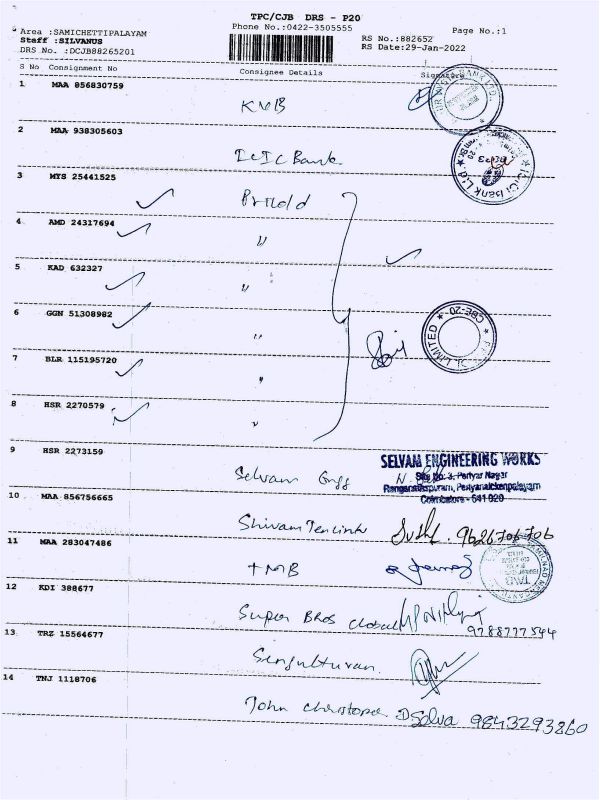 TPC/CJB DRS - P20
Area :SAMICHETTIPALAYAM
Phone No.:0422-3505555
Page No.:1
Staff :SILVANUS
RS No.:882652
DRS No. :DCJB88265201
RS Date:29-Jan-2022
S No Consignment No Consignee Details Signature
1 MAA 856830759
KVB
2 MAA 938305603
ICIC Bank
ICICI Bank Ltd
3 MTS 25441525
Pricold
4 AMD 24317694
"
5 KAD 632327
"
6 GGN 51308982
"
LIMITED CBE-20
7 BLR 115195720
"
8 HSR 2270579
"
9 HSR 2273159
SELVAM ENGINEERING WORKS
Site No: 3, Periyar Nagar
Coimbatore - 641 020
Selvam Engg
10 MAA 856756665
Shivam
9626706706
11 MAA 283047486
TMB
12 KDI 388677
Super Bros Global
9788777544
13 TRZ 15564677
14 TNJ 1118706
John Christopher Selva 9843293860